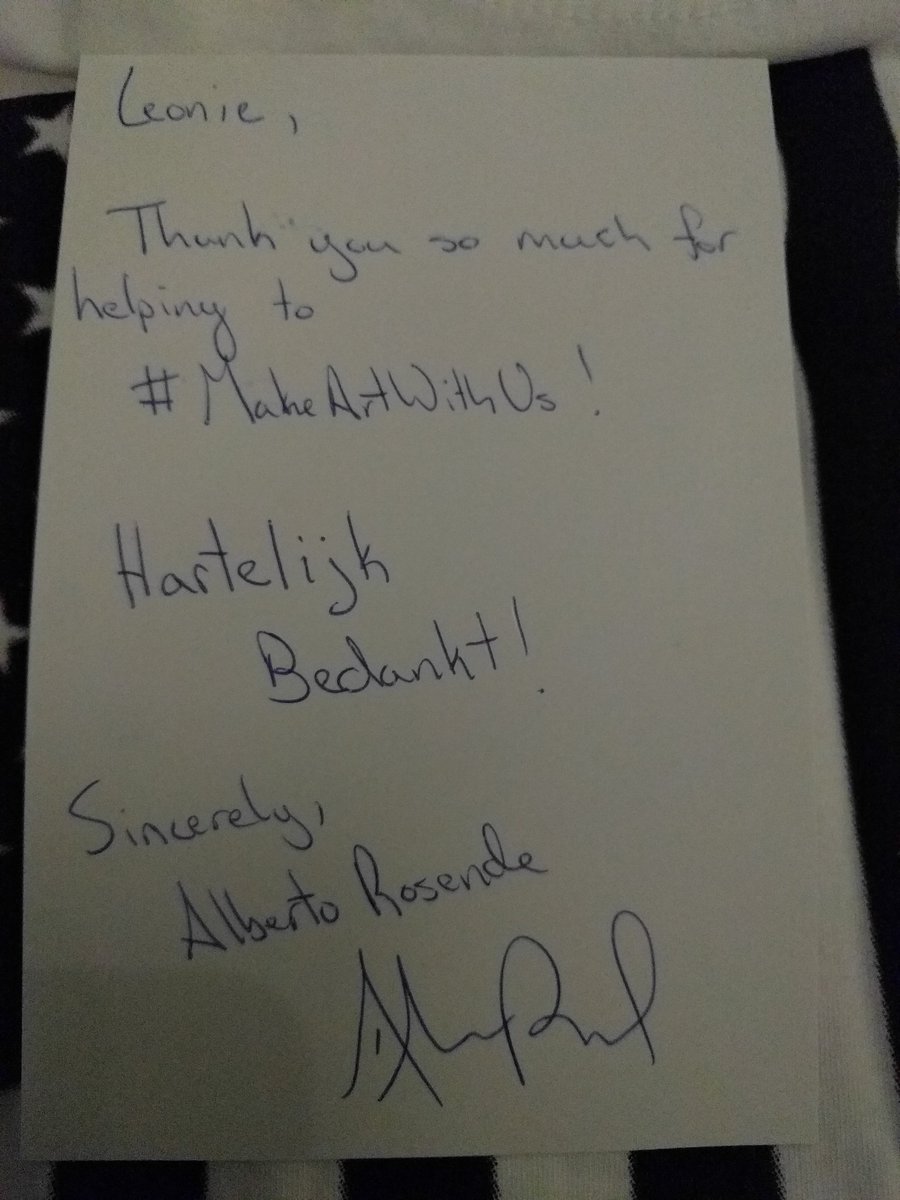 Leonie,
Thank you so much for
helping to
#MakeArtWithUs!
Hartelijk
Bedankt!
Sincerely,
Alberto Rosende